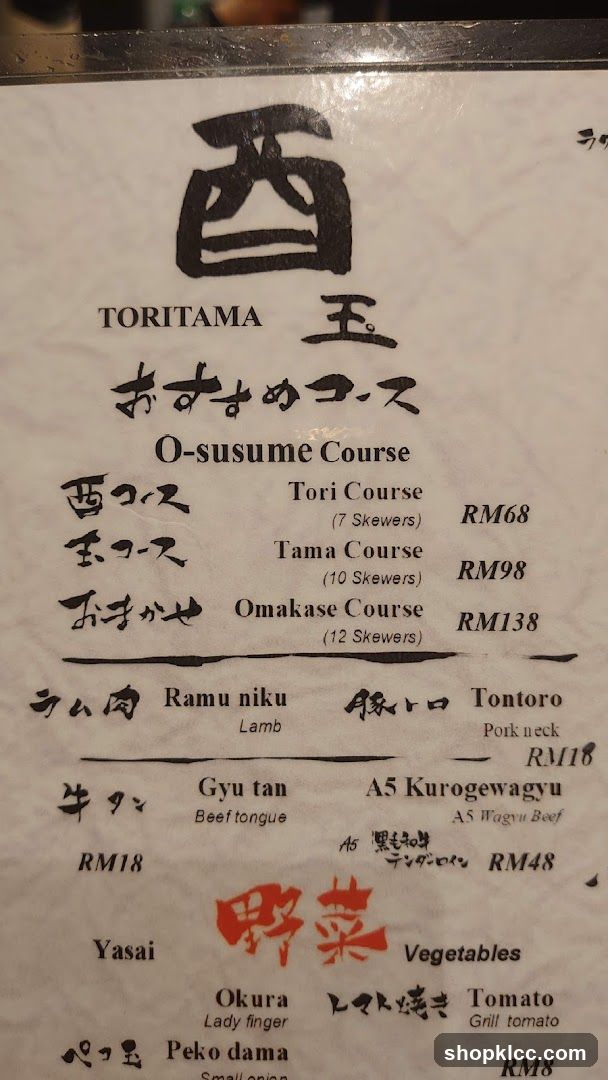 酉
TORITAMA 玉。
おすすめコース
O-susume Course
酉コース Tori Course
(7 Skewers) RM68
玉コース Tama Course
(10 Skewers) RM98
おまかせ Omakase Course
(12 Skewers) RM138
ラム肉 Ramu niku
Lamb
豚トロ Tontoro
Pork neck
RM18
牛タン Gyu tan
Beef tongue
RM18
A5 Kurogewagyu
A5 Wagyu Beef
A5 黒毛和牛
テンダーロイン RM48
Yasai 野菜 Vegetables
Okura
Lady finger
トマト焼き Tomato
Grill tomato
ペコ玉 Peko dama
Small onion
RM8
shopklcc.com